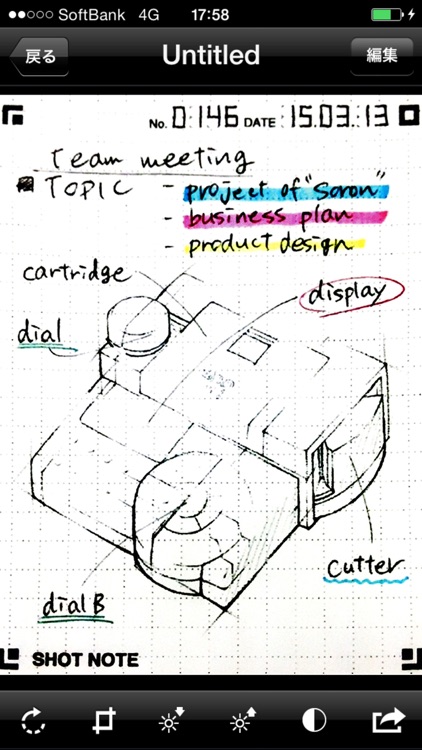 SoftBank 4G 17:58
戻る Untitled 編集
No. 0:146 DATE 15.03.:13
Team meeting
TOPIC - project of "Soron"
- business plan
- product design
cartridge
display
dial
cutter
dial B
SHOT NOTE